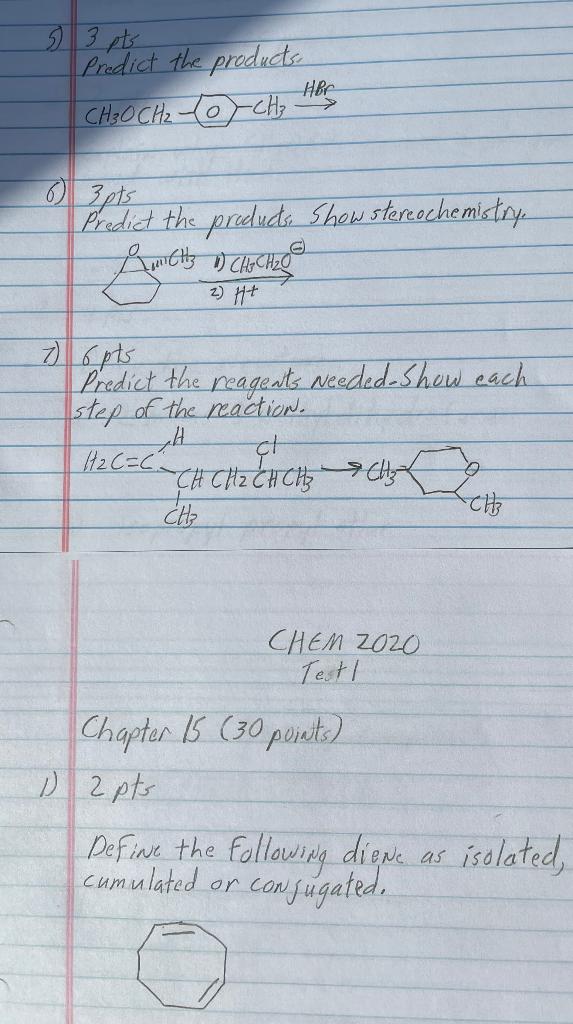 5) 3 pts
Predict the products.
CH3OCH2 - O - CH3 HBr
6) 3pts
Predict the products. Show stereochemistry.
O CH3 1) CH3CH2O⊖
2) H+
7) 6 pts
Predict the reagents Needed. Show each
step of the reaction.
H2C=C H CH CH2 CH CH3 Cl CH3 → CH3 O CH3
CHEM 2020
Test 1
Chapter 15 (30 points)
1) 2 pts
Define the following diene as isolated,
cumulated or conjugated.